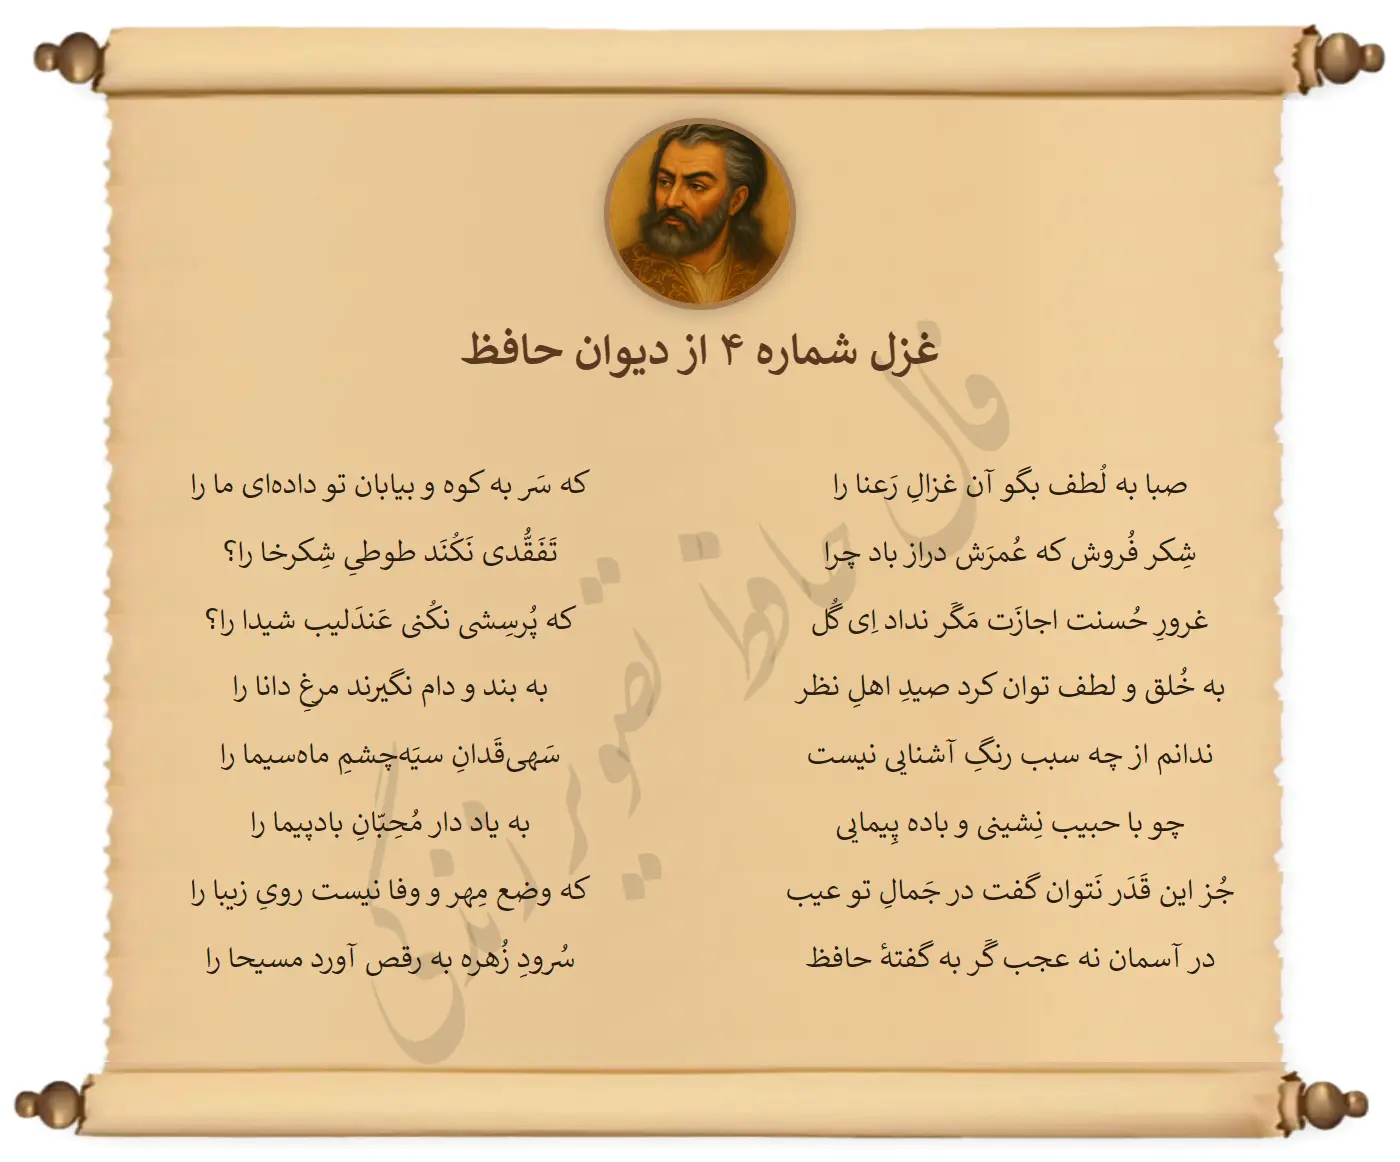 غزل شماره ۴ از دیوان حافظ
صبا به لُطف بگو آن غزالِ رَعنا را
که سَر به کوه و بیابان تو داده‌ای ما را
شِکر فُروش که عُمرَش دراز باد چرا
تَفَقُّدی نَکُنَد طوطیِ شِکرخا را؟
غرورِ حُسنت اجازَت مَگَر نداد اِی گُل
که پُرسِشی نکُنی عَندَلیب شیدا را؟
به خُلق و لطف توان کرد صیدِ اهلِ نظر
به بند و دام نگیرند مرغِ دانا را
ندانم از چه سبب رنگِ آشنایی نیست
سَهی‌قَدانِ سیَه‌چشمِ ماه‌سیما را
چو با حبیب نِشینی و باده پِیمایی
به یاد دار مُحِبّانِ بادپیما را
جُز این قَدَر نَتوان گفت در جَمالِ تو عیب
که وضع مِهر و وفا نیست رویِ زیبا را
در آسمان نه عجب گَر به گفتهٔ حافظ
سُرودِ زُهره به رقص آورد مسیحا را
فال حافظ تصویر زندگی